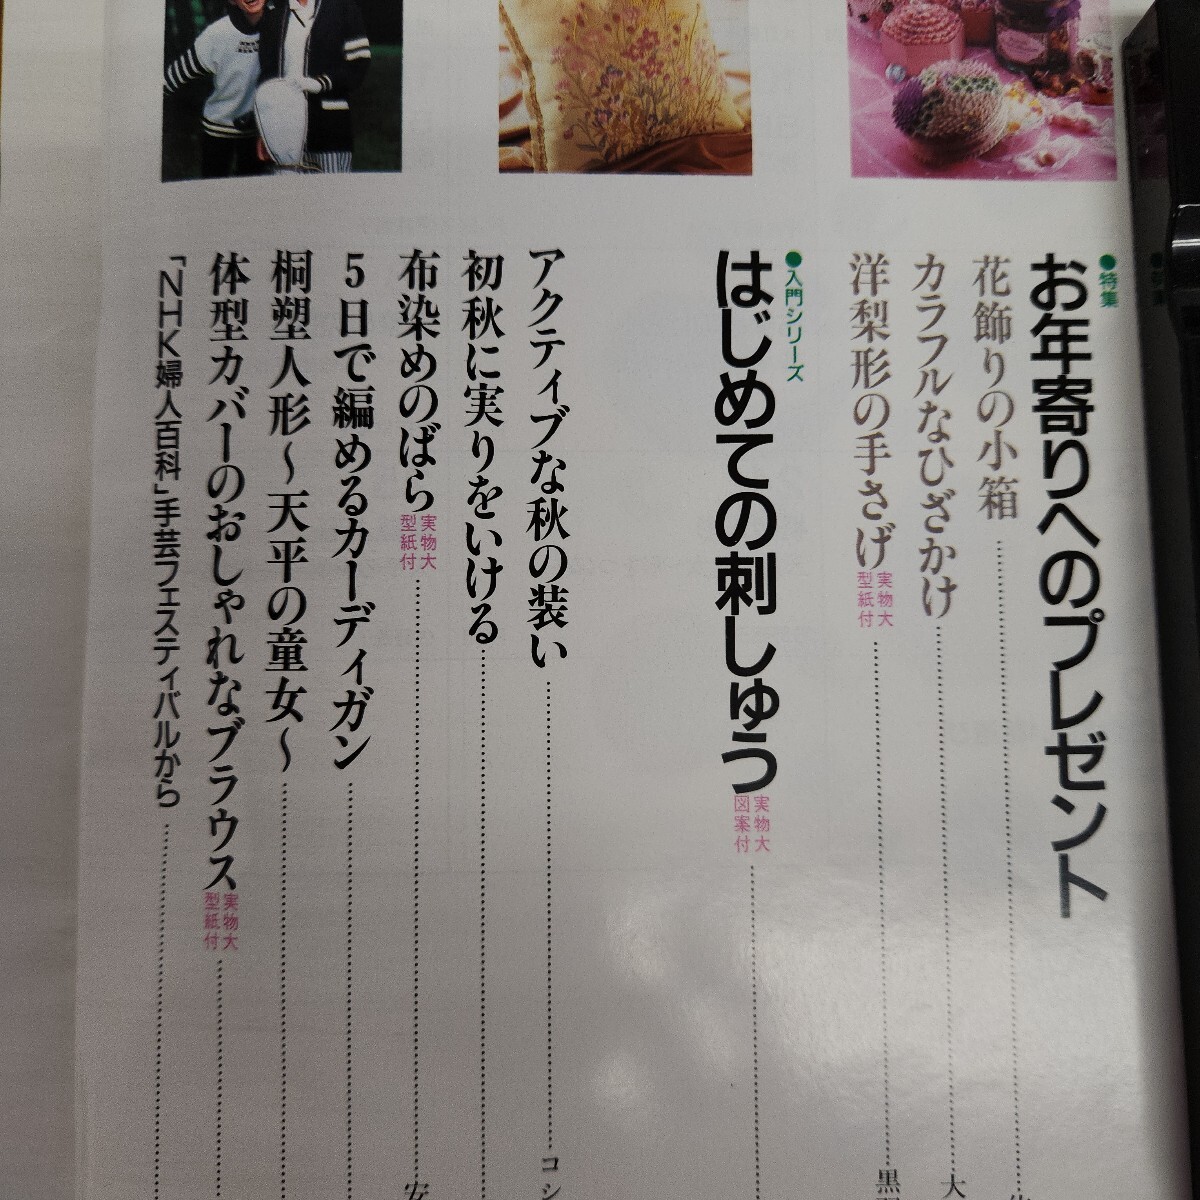 ●特集
お年寄りへのプレゼント
花飾りの小箱
カラフルなひざかけ
大
洋梨形の手さげ
実物大
型紙付
黒
●入門シリーズ
はじめての刺しゅう
実物大
図案付
アクティブな秋の装い
コシ
初秋に実りをいける
布染めのばら
実物大
型紙付
安
5日で編めるカーディガン
桐塑人形〜天平の童女〜
体型カバーのおしゃれなブラウス
実物大
型紙付
「NHK婦人百科」手芸フェスティバルから